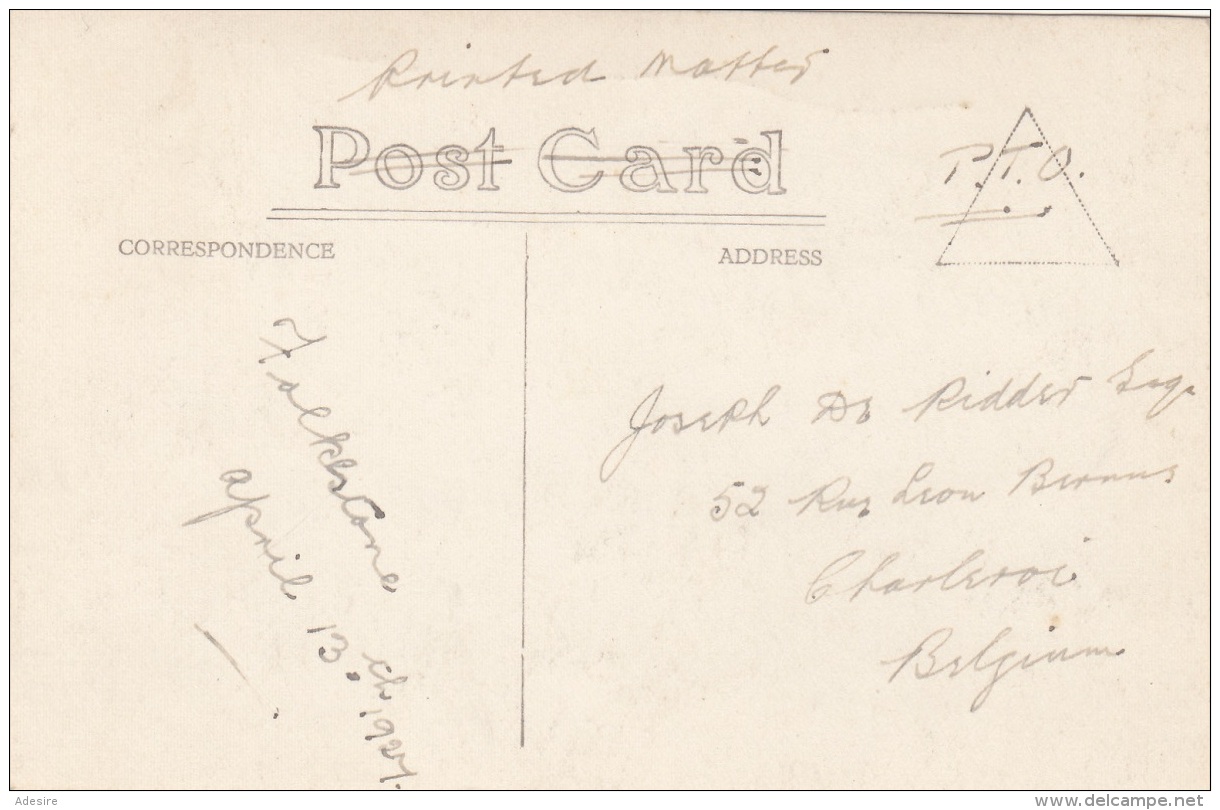 Printed Matter
Post Card
P.T.O.
CORRESPONDENCE
ADDRESS
Folkestone
April 13th 1927.
Joseph De Ridder Esq.
52 Rue Leon Bernus
Charleroi
Belgium
Adesire
www.delcampe.net